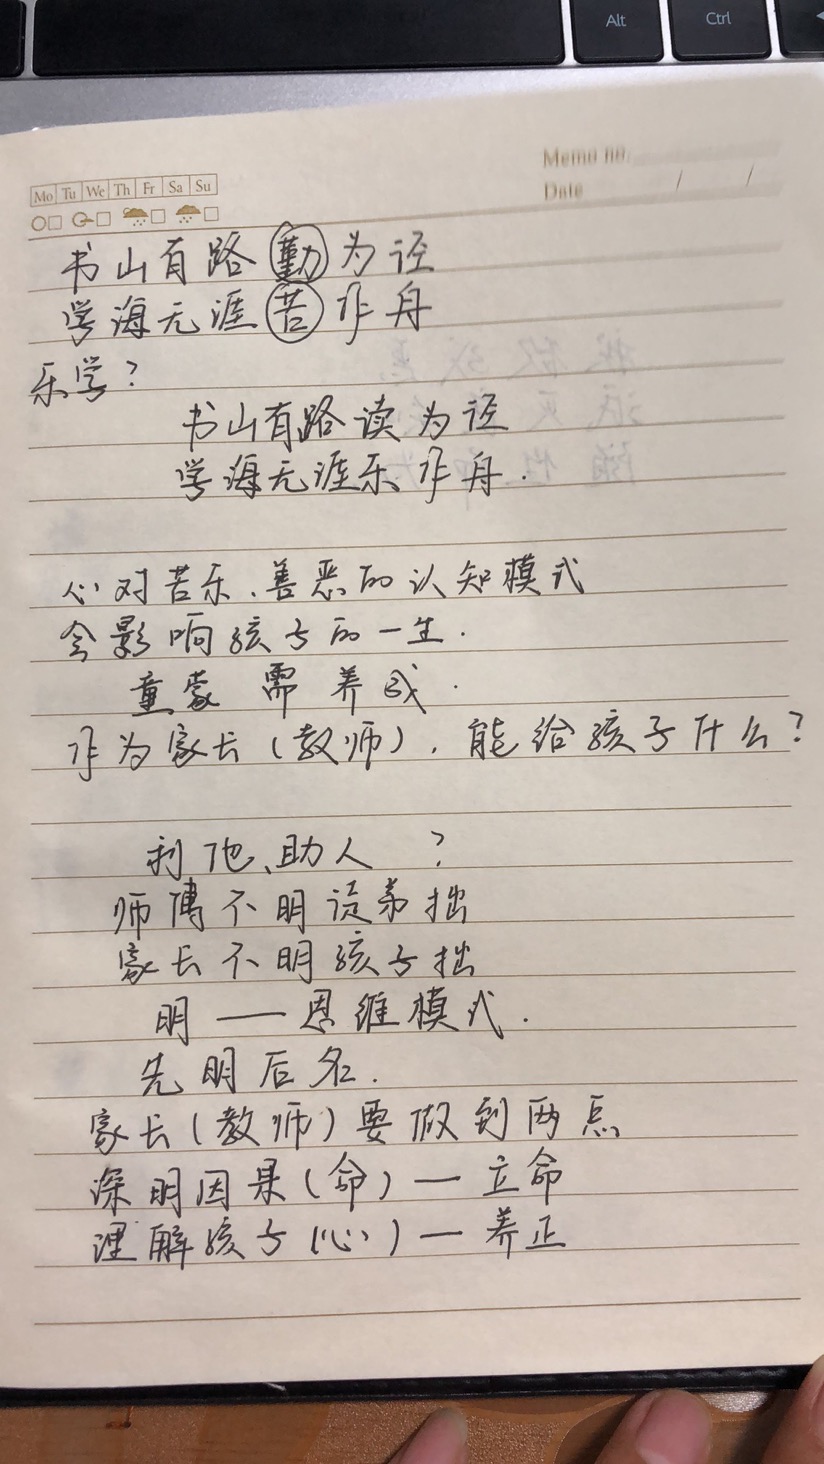 Alt Ctrl
Memo no.
Mo Tu We Th Fr Sa Su
Date / /
书山有路勤为径
学海无涯苦作舟
乐学?
书山有路读为径
学海无涯乐作舟.
心对苦乐、善恶的认知模式
会影响孩子的一生.
童蒙需养成.
作为家长(教师),能给孩子什么?
利他、助人?
师傅不明徒弟拙
家长不明孩子拙
明——思维模式.
先明后名.
家长(教师)要做到两点
深明因果(命)—立命
理解孩子(心)—养正